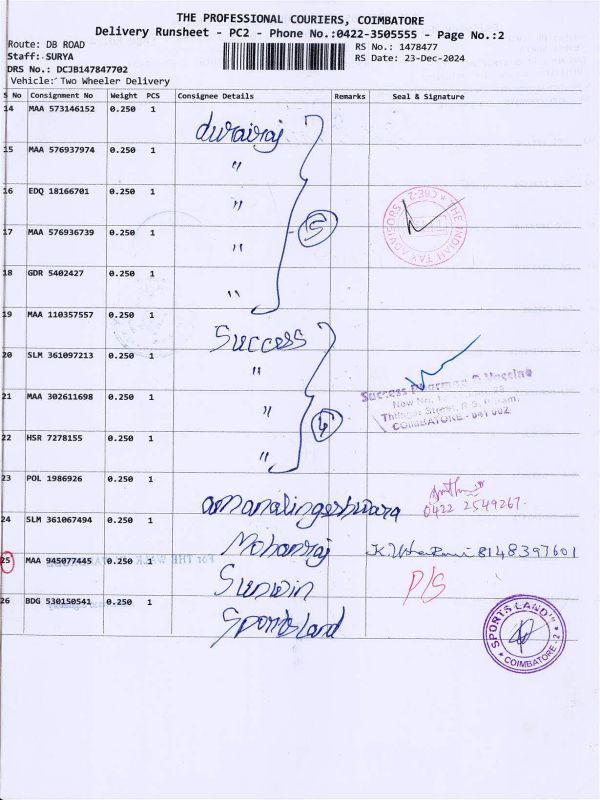 THE PROFESSIONAL COURIERS, COIMBATORE
Delivery Runsheet - PC2 - Phone No.:0422-3505555 - Page No.:2
Route: DB ROAD
RS No.: 1478477
Staff: SURYA
RS Date: 23-Dec-2024
DRS No.: DCJB147847702
Vehicle: Two Wheeler Delivery
S No Consignment No Weight PCS Consignee Details Remarks Seal & Signature
14 MAA 573146152 0.250 1 durairaj
15 MAA 576937974 0.250 1 "
16 EDQ 18166701 0.250 1 "
17 MAA 576936739 0.250 1 " 5
18 GDR 5402427 0.250 1 "
THE INDIAN TAX ADVISORS * CBE-2 *
19 MAA 110357557 0.250 1 Success
20 SLM 361097213 0.250 1 "
21 MAA 302611698 0.250 1 "
22 HSR 7278155 0.250 1 " 4
Success Pharma & Vaccine
New No.
Street, R.S. Puram,
COIMBATORE - 641 002.
23 POL 1986926 0.250 1 amanalingeshwara
0422 2549267.
24 SLM 361067494 0.250 1 Mohanraj K. Usha Rani 8148397601
25 MAA 945077445 0.250 1 Sunwin P/S
For THE WALK
26 BDG 530150541 0.250 1 Sportsland
SPORTS LAND * COIMBATORE - 2 *